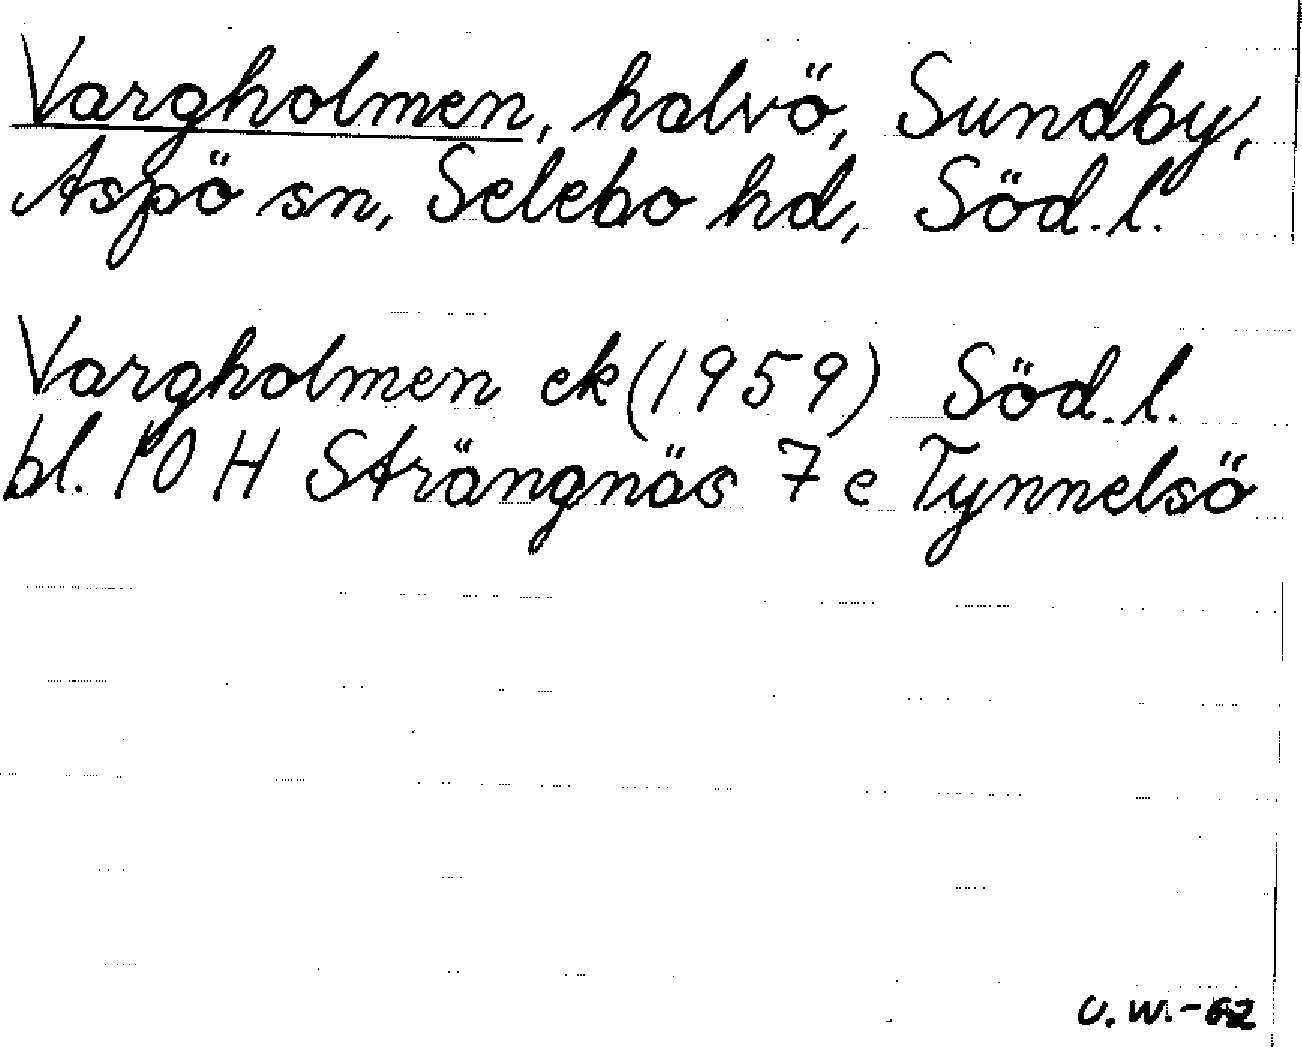 Vargholmen, halvö, Sundby,
Aspö sn, Selebo hd, Söd.l.
Vargholmen ek (1959) Söd.l.
bl. 10 H Strängnäs 7 e Tynnelsö
U.W.-62